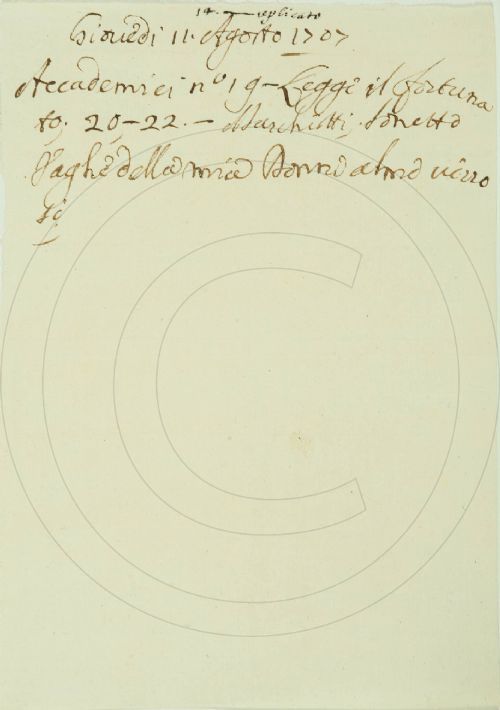 19. — replicato
Giovedi 11. Agosto 1707
Accademici nº 19 - Legge il fortuna
to. 20-22. - Marchetti, Sonetto
Vaghe della mia Donna alme